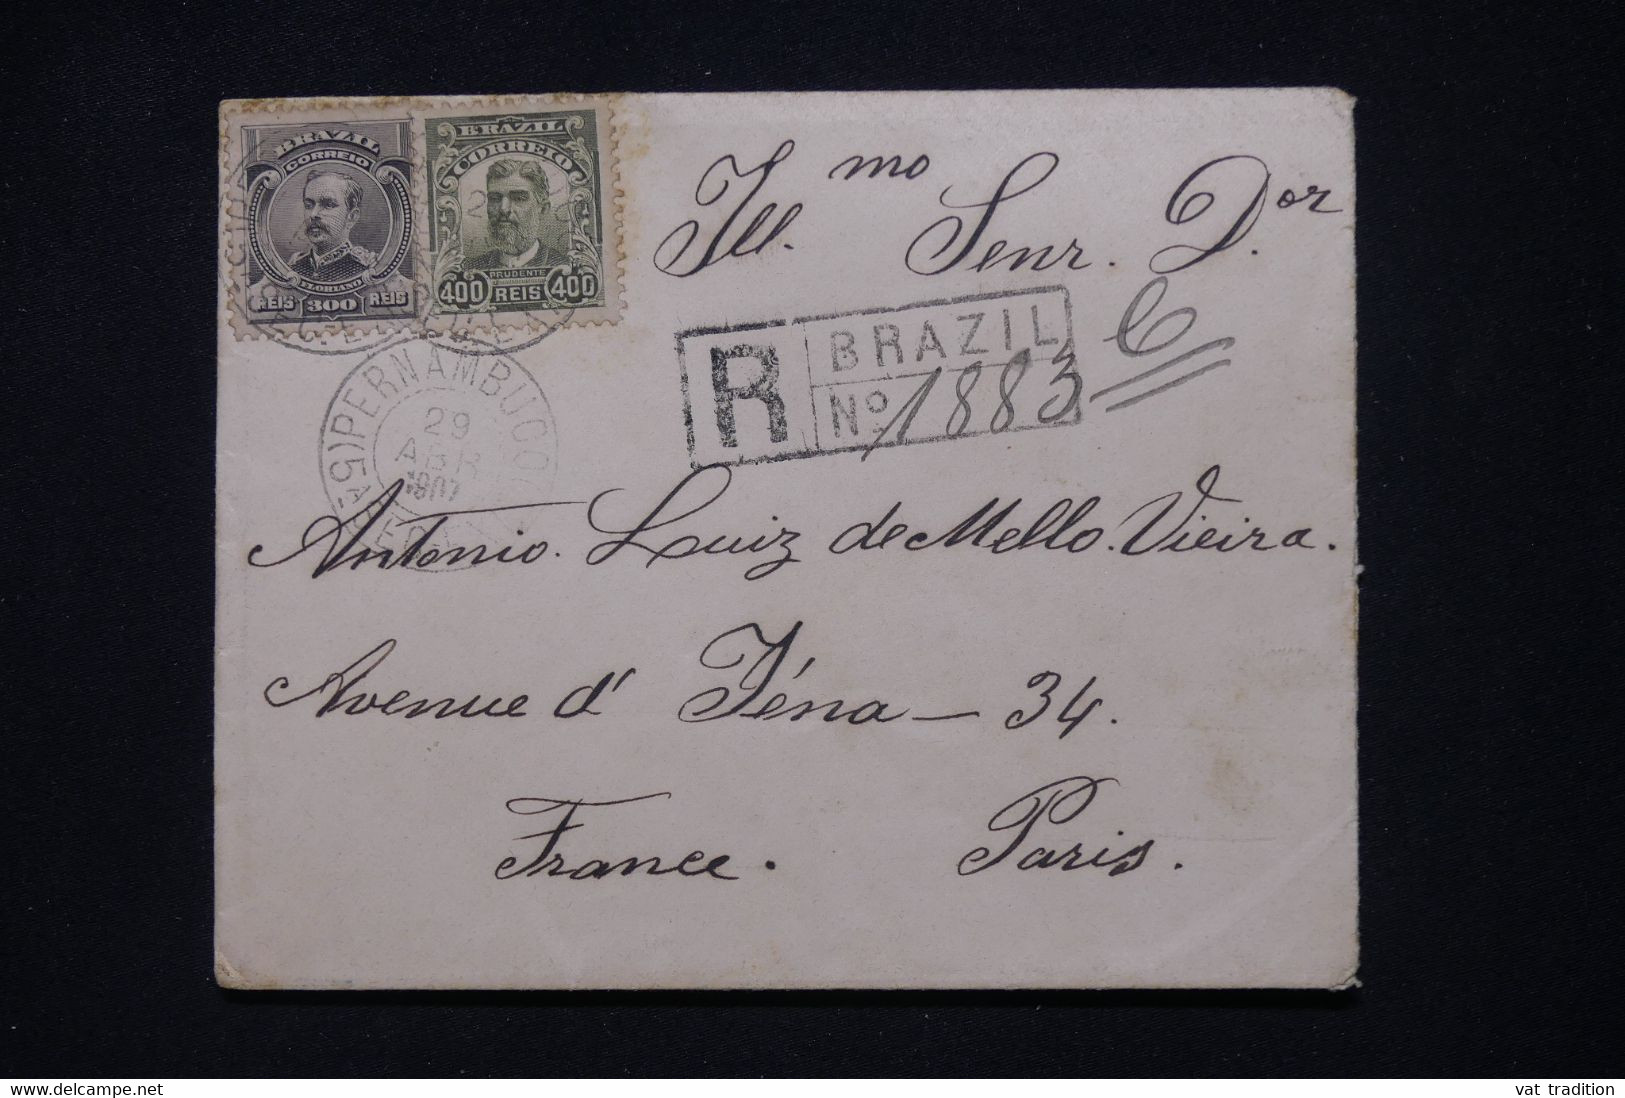 BRAZIL
CORREIO
FLORIANO
REIS 300 REIS
BRAZIL
CORREIO
PRUDENTE
400 REIS 400
Ill.mo Senr. D.or
R BRAZIL
Nº 1883
PERNAMBUCO
29
ABR
1907
Antonio. Luiz de Mello. Vieira.
Avenue d' Iéna - 34.
France. Paris.
www.delcampe.net
vat tradition